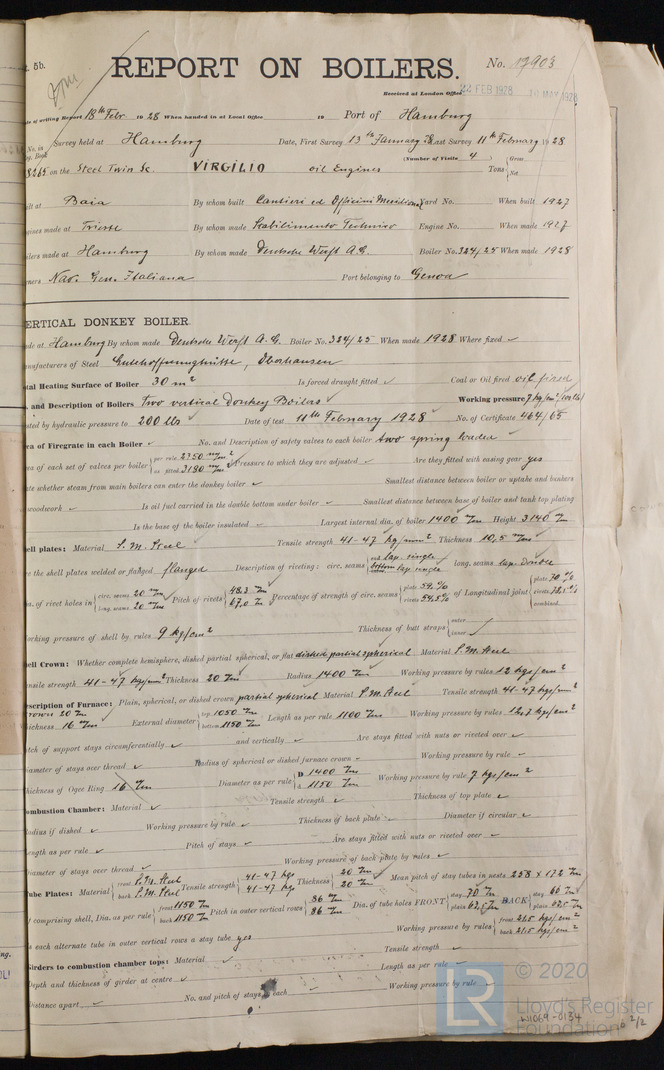 5b.
REPORT ON BOILERS.
No. 17903
Received at London Office 22 FEB 1928 10 MAY 1928
of writing Report 18th Febr. 1928 When handed in at Local Office 19 Port of Hamburg
No. in Survey held at Hamburg Date, First Survey 13th January 28 Last Survey 11th February 1928
Book (Number of Visits 4)
8265 on the Steel Twin Sc. VIRGILIO oil Engines Tons { Gross Net
at Baia By whom built Cantieri ed Officine Meridionali Yard No. When built 1927
made at Trieste By whom made Stabilimento Tecnico Engine No. When made 1927
made at Hamburg By whom made Deutsche Werft A.G. Boiler No. 324/25 When made 1928
Nav. Gen. Italiana Port belonging to Genoa
VERTICAL DONKEY BOILER.
at Hamburg By whom made Deutsche Werft A.G. Boiler No. 324/25 When made 1928 Where fixed ✓
of Steel Gutehoffnungshütte, Oberhausen
Total Heating Surface of Boiler 30 m² Is forced draught fitted ✓ Coal or Oil fired oil fired
and Description of Boilers Two vertical Donkey Boilers Working pressure 7 kg/cm² (100 lbs)
by hydraulic pressure to 200 lbs Date of test 11th February 1928 No. of Certificate 464/65
Area of Firegrate in each Boiler ✓ No. and Description of safety valves to each boiler two spring loaded
of each set of valves per boiler { per rule 2750 mm² as fitted 3180 mm² Pressure to which they are adjusted ✓ Are they fitted with easing gear yes
whether steam from main boilers can enter the donkey boiler ✓ Smallest distance between boiler or uptake and bunkers
woodwork ✓ Is oil fuel carried in the double bottom under boiler ✓ Smallest distance between base of boiler and tank top plating
Is the base of the boiler insulated ✓ Largest internal dia. of boiler 1400 m/m Height 3140 m/m
Shell plates: Material S.M. Steel Tensile strength 41-47 kg/mm² Thickness 10,5 m/m
the shell plates welded or flanged flanged Description of riveting: circ. seams { end lap single bottom lap single long. seams lap double
of rivet holes in { circ. seams 20 m/m long. seams 20 m/m Pitch of rivets { 48.3 m/m 67,0 m/m Percentage of strength of circ. seams { plate 59,% rivets 54,5% of Longitudinal joint { plate 70 % rivets % combined
Working pressure of shell by rules 9 kg/cm² Thickness of butt straps { outer inner ✓
Shell Crown: Whether complete hemisphere, dished partial spherical, or flat dished partial spherical Material S.M. Steel
Tensile strength 41-47 kg/mm² Thickness 20 m/m Radius 1400 m/m Working pressure by rules 12 kgs/cm²
Description of Furnace: Plain, spherical, or dished crown partial spherical Material S.M. Steel Tensile strength 41-47 kgs/mm²
Crown 20 m/m
Thickness 16 m/m External diameter { top 1050 m/m bottom 1150 m/m Length as per rule 1100 m/m Working pressure by rules 12,7 kgs/cm²
Pitch of support stays circumferentially ✓ and vertically ✓ Are stays fitted with nuts or riveted over ✓
Diameter of stays over thread ✓ Radius of spherical or dished furnace crown ✓ Working pressure by rule ✓
Thickness of Ogee Ring 16 m/m Diameter as per rule { D 1400 m/m d 1150 m/m Working pressure by rule 7 kgs/cm²
Combustion Chamber: Material ✓ Tensile strength ✓ Thickness of top plate ✓
Radius if dished ✓ Working pressure by rule ✓ Thickness of back plate ✓ Diameter if circular ✓
Length as per rule ✓ Pitch of stays ✓ Are stays fitted with nuts or riveted over ✓
Diameter of stays over thread ✓ Working pressure of back plate by rules ✓
Tube Plates: Material { front S.M. Steel back S.M. Steel Tensile strength { 41-47 kgs 41-47 kgs Thickness { 20 m/m 20 m/m Mean pitch of stay tubes in nests 258 x 172 m/m
If comprising shell, Dia. as per rule { front 1150 m/m back 1150 m/m Pitch in outer vertical rows { 86 m/m 86 m/m Dia. of tube holes FRONT { stay 70 m/m plain 62,5 m/m BACK { stay 66 m/m plain
Is each alternate tube in outer vertical rows a stay tube yes Working pressure by rules { front 21.5 kgs/cm² back 21.5 kgs/cm²
Girders to combustion chamber tops: Material ✓ Tensile strength ✓
Depth and thickness of girder at centre ✓ Length as per rule ✓
Distance apart ✓ No. and pitch of stays each ✓ Working pressure by rule ✓
LR © 2020
Lloyd's Register
Foundation
W1069-0134 2/2